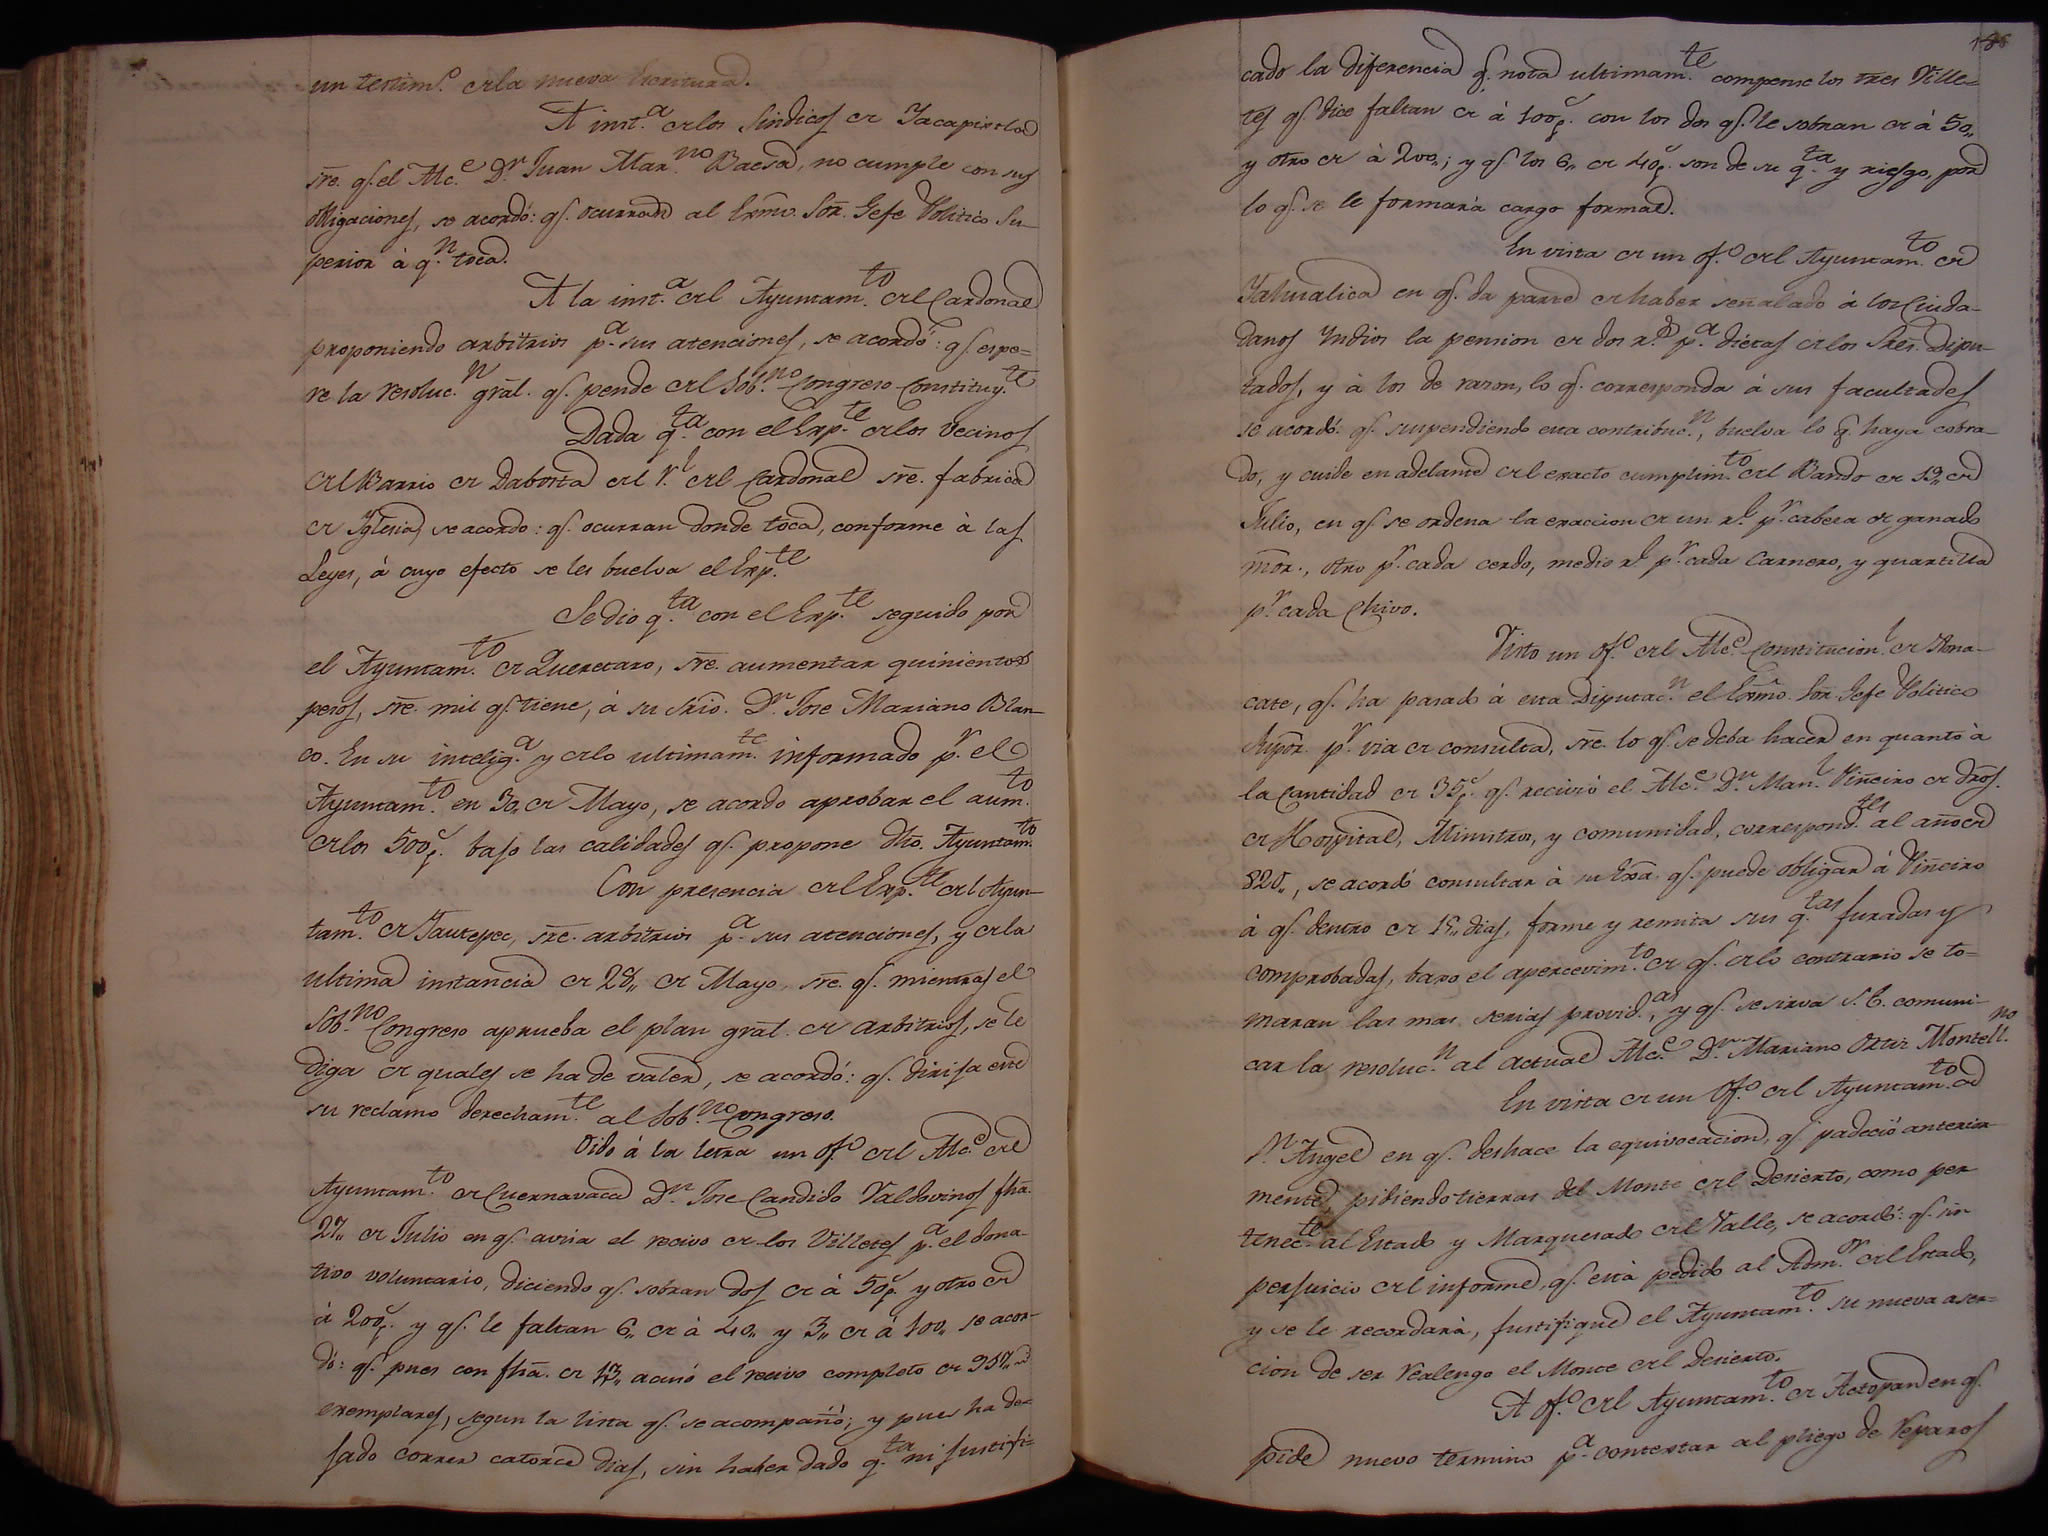 un testim.º de la nueva Escritura.
A inst.ª de los Sindicos de Yacapixtla
sre. q.e el Alc.e D.n Juan Mar.no Baesa, no cumple con sus
obligaciones, se acordó: q.e ocurran al Exmo. Sor. Gefe Politico Su-
perior á q.n toca.
A la inst.ª del Ayuntam.to del Cardonal
proponiendo arbitrios p.ª sus atenciones, se acordó: q.e espe-
re la resoluc.n gral. q.e pende del Sob.no Congreso Constituy.te
Dada q.ta con el Exp.te de los vecinos
del Barrio de Daborta del R.l del Cardonal sre. fabrica
de Yglesia, se acordo: q.e ocurran donde toca, conforme á las
Leyes, á cuyo efecto se les buelva el Exp.te
Se dio q.ta con el Exp.te seguido por
el Ayuntam.to de Queretaro, sre. aumentar quinientos
pesos, sre. mil q.e tiene, á su Srio. D.n Jose Mariano Blan-
co. En su intelig.ª y de lo ultimam.te informado p.r el
Ayuntam.to en 30,, de Mayo, se acordo aprobar el aum.to
de los 500 p.s bajo las calidades q.e propone dho. Ayuntam.to
Con presencia del Exp.te del Ayun-
tam.to de Yautepec, sre. arbitrios p.ª sus atenciones, y de la
ultima instancia de 28,, de Mayo, sre. q.e mientras el
Sob.no Congreso aprueba el plan gral. de arbitrios, se le
diga de quales se ha de valer, se acordó: q.e dirija este
su reclamo derecham.te al Sob.no Congreso.
Oido á la letra un of.º del Alc.e del
Ayuntam.to de Cuernavaca D.n Jose Candido Valdovinos fha.
27,, de Julio en q.e avisa el recivo de los Villetes p.ª el dona-
tivo voluntario, diciendo q.e sobran dos de á 50 p.s y otro de
á 200 p.s y q.e le faltan 6,, de á 40,, y 3,, de á 100,, se acor-
dó: q.e pues con fha. de 13,, acusó el recivo completo de 957,,
exemplares, segun la lista q.e se acompañó; y pues ha de-
jado correr catorce dias, sin haber dado q.ta ni justifi-
186
cado la diferencia q.e nota ultimam.te compense los tres Ville-
tes q.e dice faltan de á 100 p.s con los dos q.e le sobran de á 50,,
y otro de á 200,,; y q.e los 6,, de 40 p.s son de su q.ta y riesgo, por
lo q.e se le formará cargo formal.
En vista de un of.º del Ayuntam.to de
Yahualica en q.e da parte de haber señalado á los Ciuda-
danos Yndios la pension de dos r.s p.ª dietas de los Sres. Dipu-
tados, y á los de razon, lo q.e corresponda á sus facultades
se acordó: q.e suspendiendo esta contribuc.n, buelva lo q.e haya cobra-
do, y cuide en adelante del exacto cumplim.to del Bando de 13,, de
Julio, en q.e se ordena la exaccion de un r.l p.r cabeza de ganado
mor., otro p.r cada cerdo, medio r.l p.r cada Carnero, y quartilla
p.r cada Chivo.
Visto un of.º del Alc.e Constitucion.l de Xona-
cate, q.e ha pasado á esta Diputac.n el Exmo. Sor. Gefe Politico
Supor. p.r via de consulta, sre. lo q.e se deba hacer en quanto á
la cantidad de 35 p.s q.e recivió el Alc.e D.n Man.l Viñeiro de dros.
de Hospital, Ministros, y comunidad, correspond.tes al año de
820,, se acordó consultar á su Exa. q.e puede obligar á Viñeiro
á q.e dentro de 15,, dias, forme y remita sus q.tas juradas y
comprobadas, baxo el apercevim.to de q.e de lo contrario se to-
maran las mas serias provid.as, y q.e se sirva S.E. comuni-
car la resoluc.n al actual Alc.e D.n Mariano Ortiz Montell.no
En vista de un Of.º del Ayuntam.to de
S.n Angel en q.e deshace la equivocacion, q.e padeció anterior-
mente, pidiendo tierras del Monte del Desierto, como per
tenec.te al Estado y Marquesado del Valle, se acordó: q.e sin
perjuicio del informe, q.e está pedido al Adm.or del Estado,
y se le recordará, justifique el Ayuntam.to su nueva aser-
cion de ser realengo el Monte del Desierto.
A of.º del Ayuntam.to de Actopan en q.e
pide nuevo termino p.ª contestar al pliego de reparos